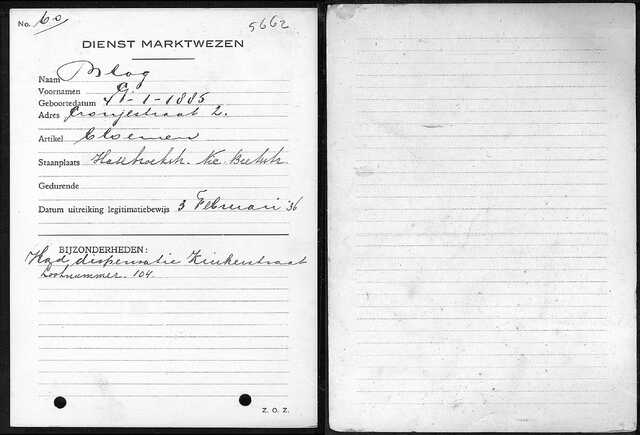 No. 60 5662
DIENST MARKTWEZEN
Naam Blog
Voornamen G.
Geboortedatum -1-1885
Adres Cronjéstraat 2.
Artikel Bloemen
Staanplaats
Gedurende
Datum uitreiking legitimatiebewijs 3 Februari '36
BIJZONDERHEDEN:
Had dispensatie Kinkerstraat
Lootnummer. 104.
Z. O. Z.